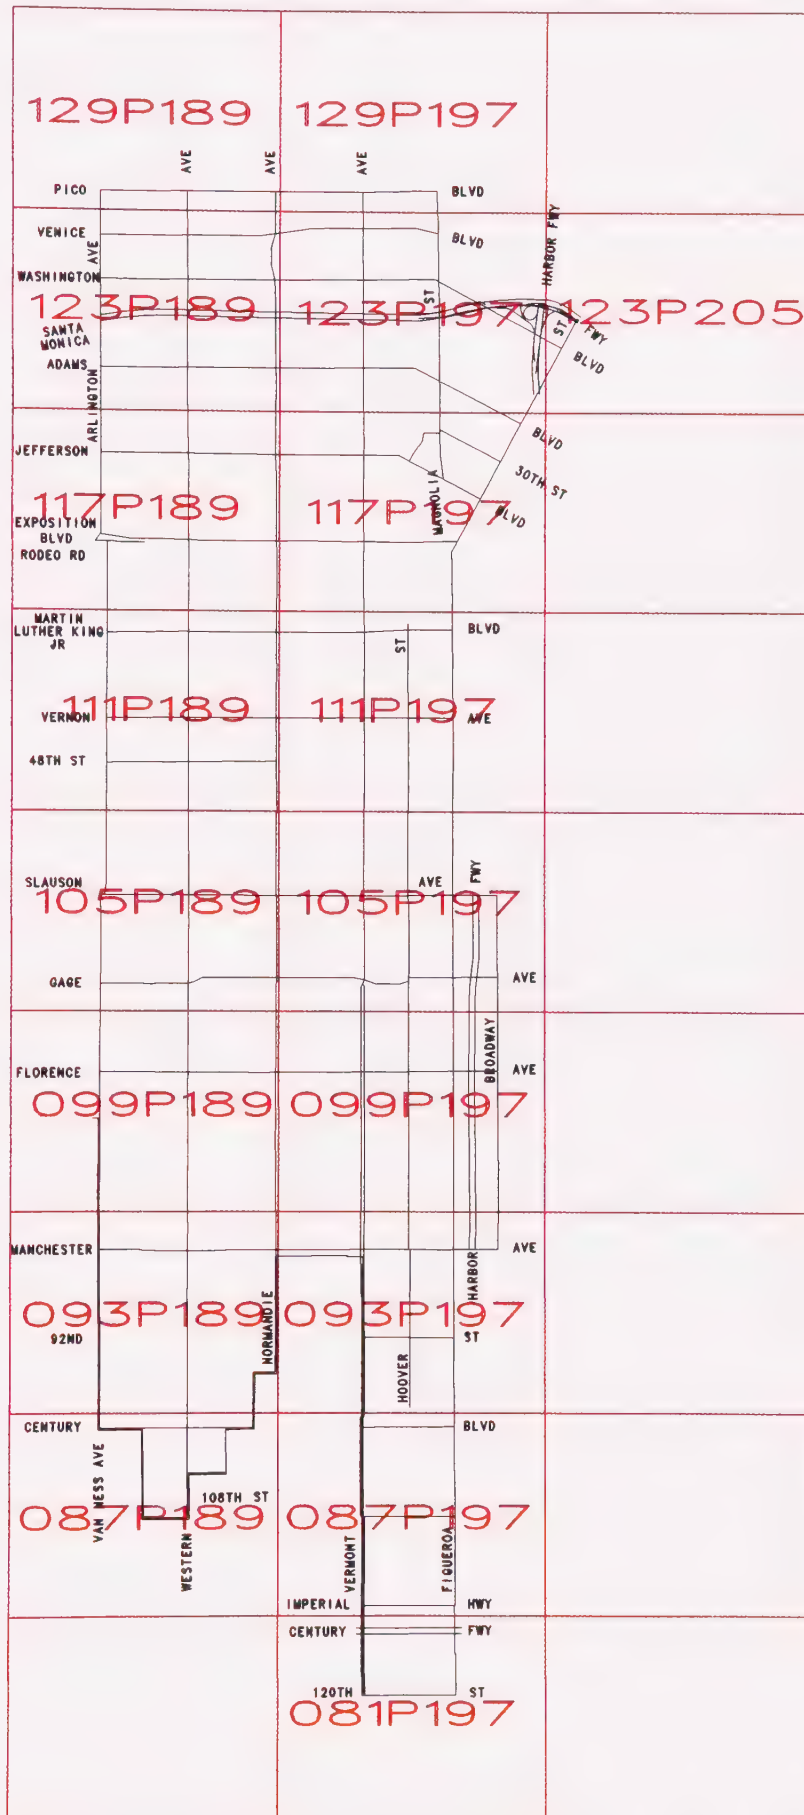 129P189 129P197
AVE AVE AVE
PICO BLVD
HARBOR FWY
VENICE BLVD
AVE
WASHINGTON
ST
123P189 123P197 123P205
SANTA
MONICA
ST FWY
ADAMS BLVD
ARLINGTON
BLVD
JEFFERSON
30TH ST
MAGNOLIA
117P189 117P197
BLVD
EXPOSITION
BLVD
RODEO RD
MARTIN
LUTHER KING BLVD
JR
ST
111P189 111P197
VERNON AVE
48TH ST
FWY
SLAUSON AVE
105P189 105P197
GAGE AVE
BROADWAY
FLORENCE AVE
099P189 099P197
MANCHESTER AVE
HARBOR
NORMANDIE
093P189 093P197
92ND ST
HOOVER
CENTURY BLVD
VAN NESS AVE
108TH ST
087P189 087P197
WESTERN
VERMONT
FIGUEROA
IMPERIAL HWY
CENTURY FWY
120TH ST
081P197